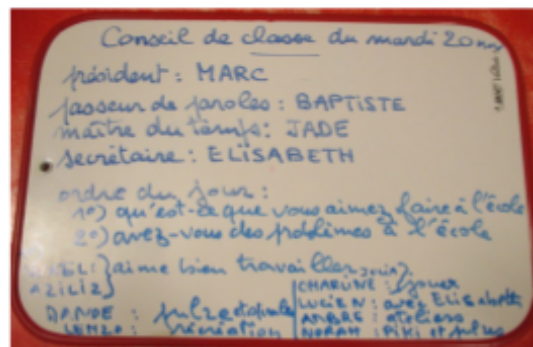 Conseil de classe du mardi 20 nov
président : MARC
passeur de paroles : BAPTISTE
maître du temps : JADE
secrétaire : ELISABETH
ordre du jour :
1°) qu'est-ce que vous aimez faire à l'école
2°) avez-vous des problèmes à l'école
AZILIZ } aime bien travailler
: jouer
LUCIEN : avec Elisabeth
AMBRE : ateliers
: récréation
NORAH : et